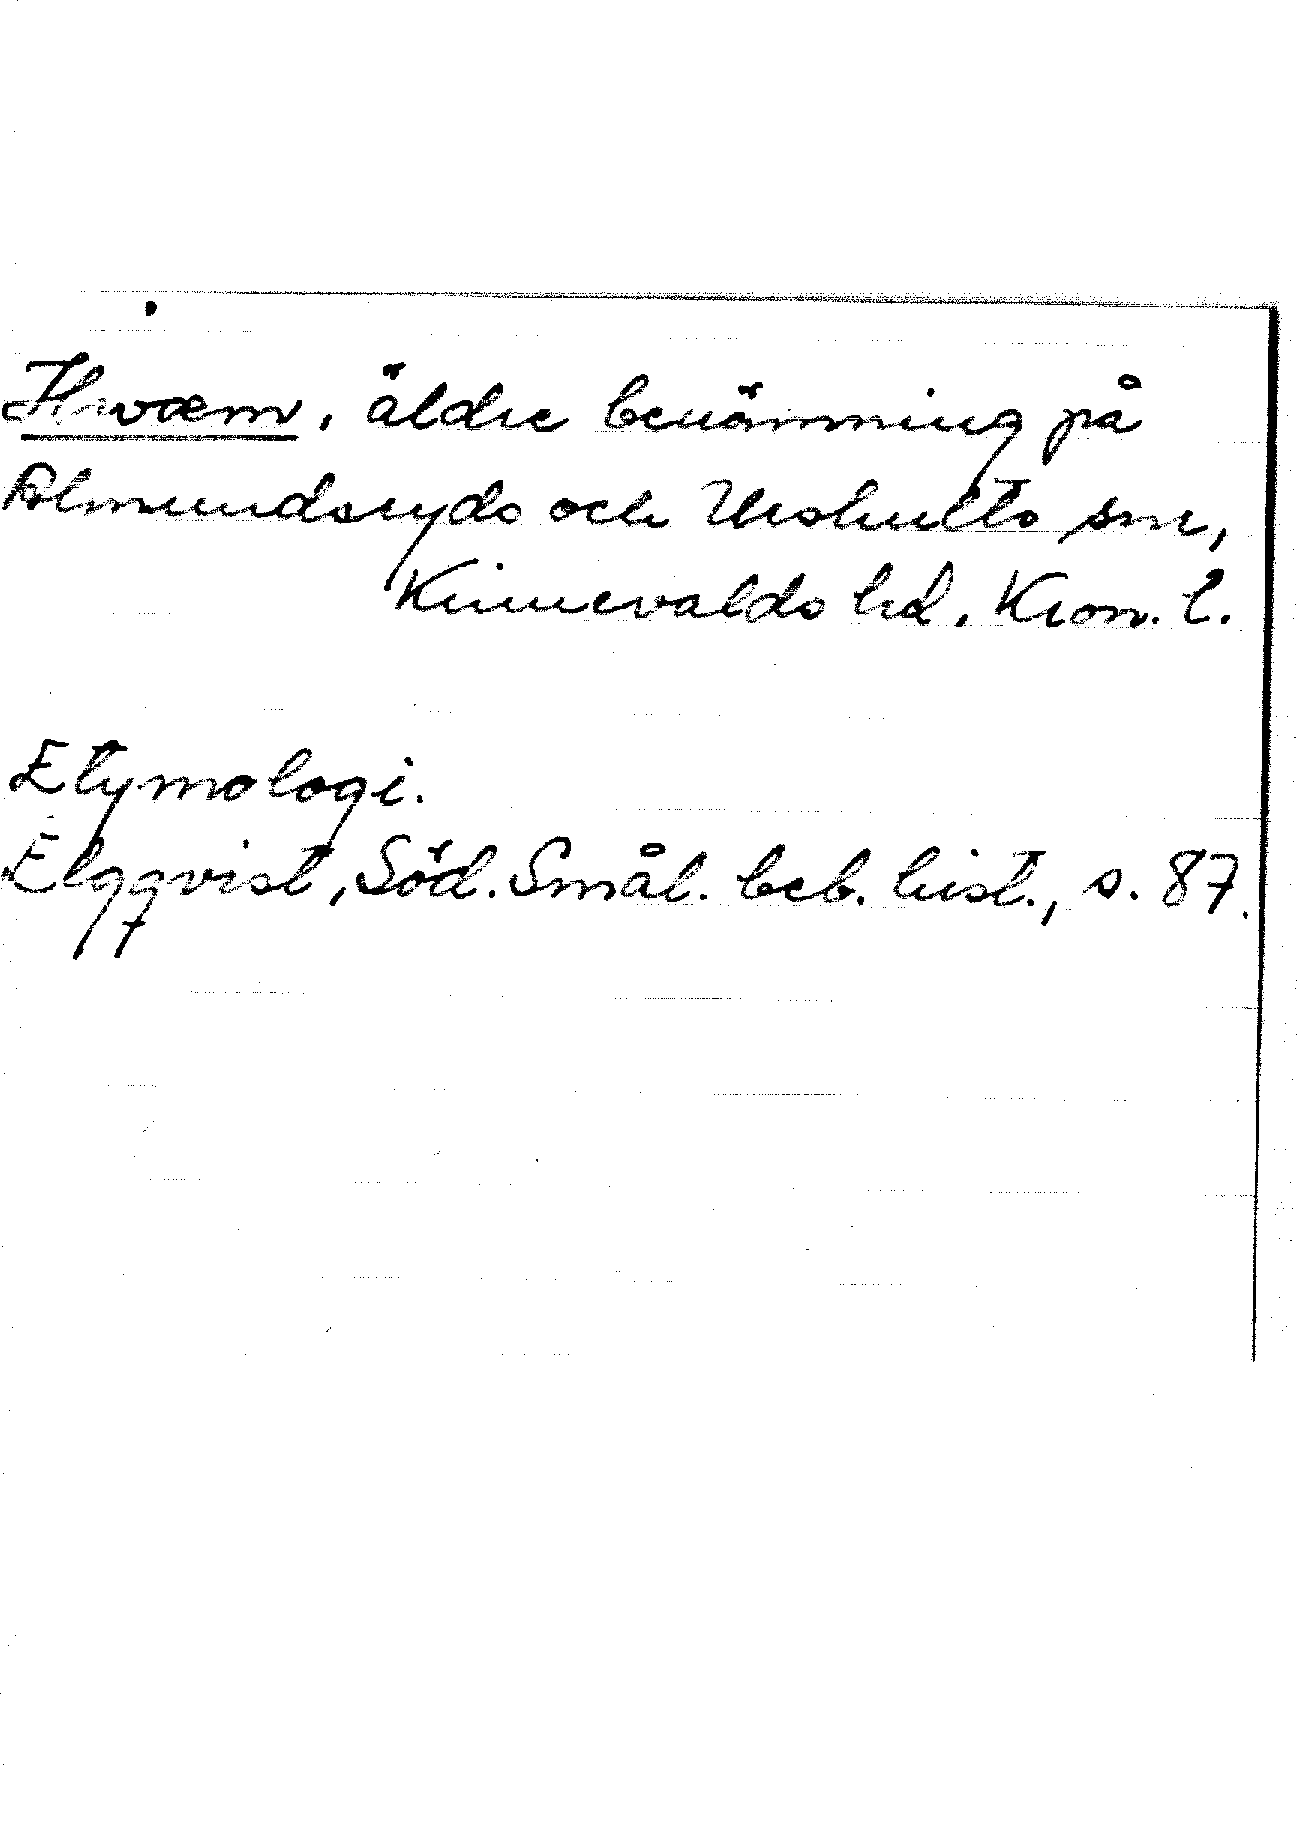 Hwæm, äldre benämning på
Almundsryds och Urshults snr,
Kinnevalds hd, Kron. l.
Etymologi.
Elgqvist, Söd. Smål. beb. hist., s. 87.